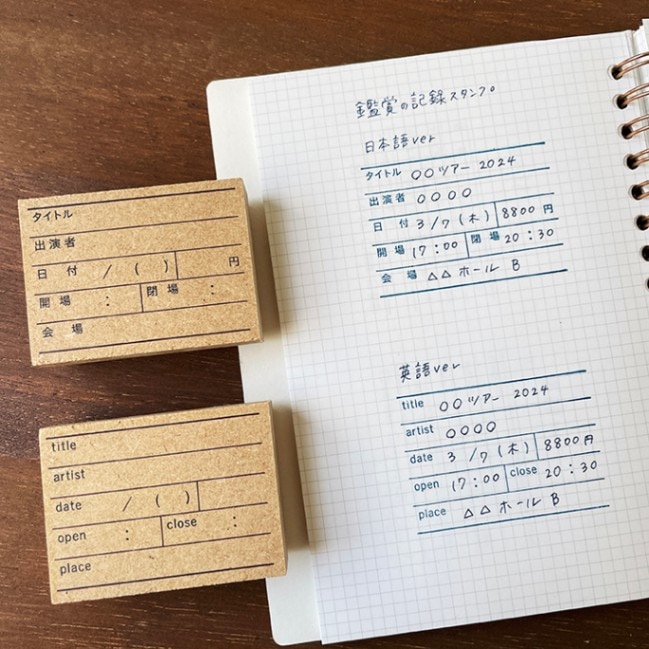 タイトル
出演者
日 付 / ( ) 円
開 場 : 閉 場 :
会 場
title
artist
date / ( )
open : close :
place
鑑賞の記録スタンプ。
日本語ver
タイトル ○○ツアー 2024
出演者 ○○○○
日 付 3/7(木) 8800円
開 場 17:00 閉 場 20:30
会 場 △△ホール B
英語ver
title ○○ツアー 2024
artist ○○○○
date 3/7(木) 8800円
open 17:00 close 20:30
place △△ホール B